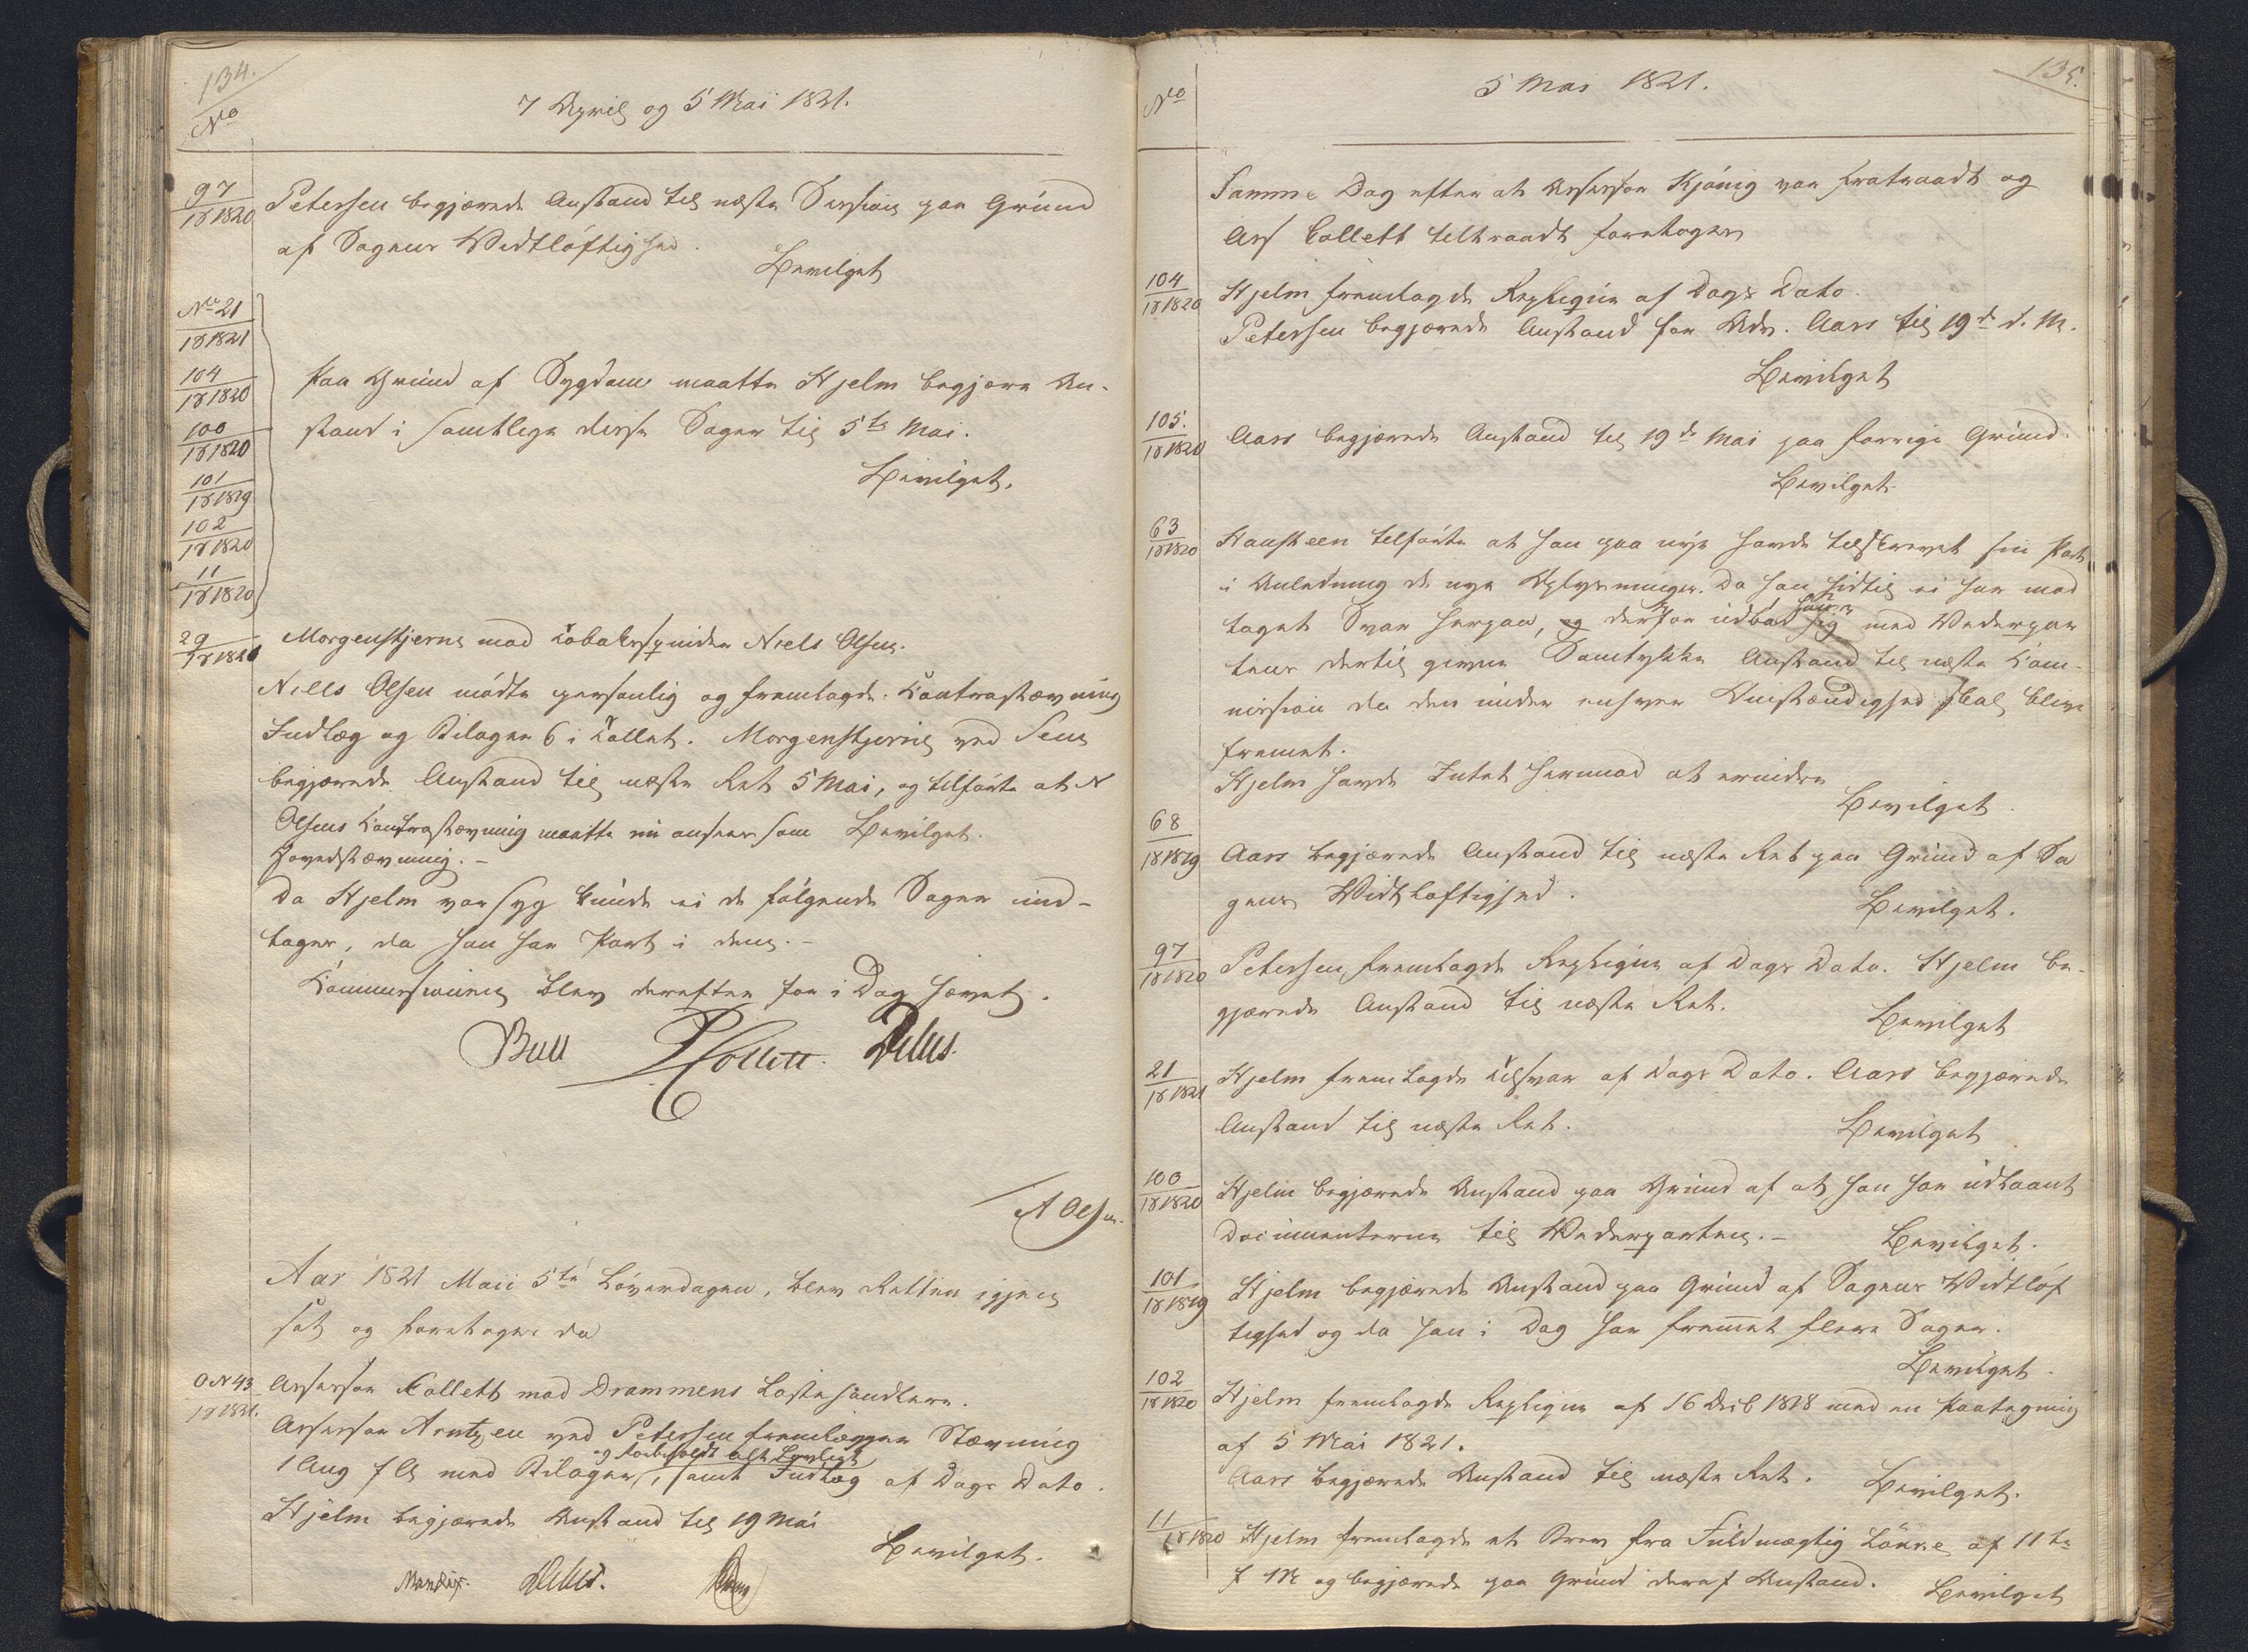 134.
No
7 April og 5 Mai 1821.
97
18 1820
Petersen begjærede Anstand til næste Session paa Grund
af Sagens Vidtløftighed.
Bevilget
No 21
18 1821
104
18 1820
100
18 1820
101
18 1819
102
18 1820
11
18 1820
Paa Grund af Sygdom maatte Hjelm begjære An-
stand i samtlige disse Sager til 5te Mai.
Bevilget.
29
18 1821
Morgenstjerne mod Tobaksspinder Niels Olsen.
Niels Olsen mødte personlig og fremlagde: Contrastævning
Indlæg og Bilager 6 i Tallet. Morgenstjerne ved Sens
begjærede Anstand til næste Ret 5 Mai, og tilførte at N
Olsens Contrastævning maatte ansees som Bevilget.
Hovedstævning. –
Da Hjelm var syg kunde ei de følgende Sager ind-
tages, da han har Part i dem. –
Commissionen blev derefter for i Dag hævet.
Bull PCollett. Delus.
A Olsen.
Aar 1821 Maii 5te Løverdagen, blev Retten igjen
sat og foretoges da
No 43
18 1821.
Assessor Collett mod Drammens Lastehandlere.
Assessor Arntzen ved Petersen fremlægger Stævning
og forbeholdt alt Lovligt
1 Aug f A med Bilager, samt Indlæg af Dags Dato.
Hjelm begjærede Anstand til 19 Mai
Bevilget.
Mandix. Delus.
135.
No
5 Mai 1821.
Samme Dag efter at Assessor Kjønig var fratraadt og
Ass Collett tiltraadt foretoges
104
18 1820
Hjelm fremlagde Repliqve af Dags Dato.
Petersen begjærede Anstand for Adv. Aars til 19de d. M.
Bevilget
105.
18 1820
Aars begjærede Anstand til 19de Mai paa forrige Grund.
Bevilget.
63
18 1820
Hansteen tilførte at han paa nye havde tilskrevet sin Part
i Anledning de nye Oplysninger. Da han hidtil ei har mod
taget Svar herpaa, og derfor udbad han sig med Vederpar
tens dertil givne Samtykke Anstand til næste Com-
mission da den under enhver Omstændighed skal blive
fremmet.
Hjelm havde Intet herimod at erindre
Bevilget.
68
18 1819
Aars begjærede Anstand til næste Ret paa Grund af Sa
gens Vidtløftighed.
Bevilget.
97
18 1820
Petersen fremlagde Repliqve af Dags Dato. Hjelm be-
gjærede Anstand til næste Ret.
Bevilget
21
18 1821
Hjelm fremlagde Tilsvar af Dags Dato. Aars begjærede
Anstand til næste Ret.
Bevilget
100
18 1820
Hjelm begjærede Anstand paa Grund af at han har udlaant
Documenterne til Vederparten. –
Bevilget.
101
18 1819
Hjelm begjærede Anstand paa Grund af Sagens Vidtløf
tighed og da han i Dag har fremmet flere Sager.
Bevilget.
102
18 1820
Hjelm fremlagde Repliqve af 16 Decb 1818 med en Paategning
af 5 Mai 1821.
Aars begjærede Anstand til næste Ret.
Bevilget.
11
18 1820
Hjelm fremlagde et Brev fra Fuldmægtig Lønne af 11te
f M og begjærede paa Grund deraf Anstand.
Bevilget